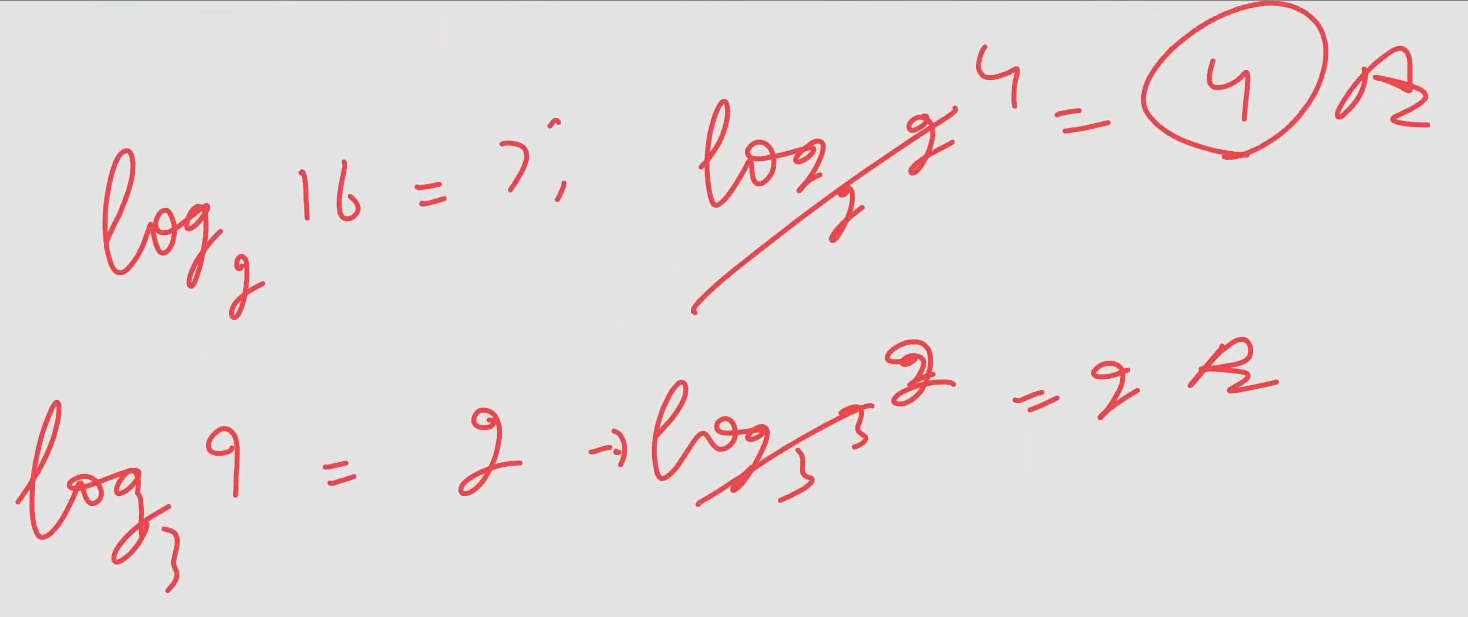 log₂ 16 = ?; log₂ 2⁴ = 4 R
log₃ 9 = 2 → log₃ 3² = 2 R